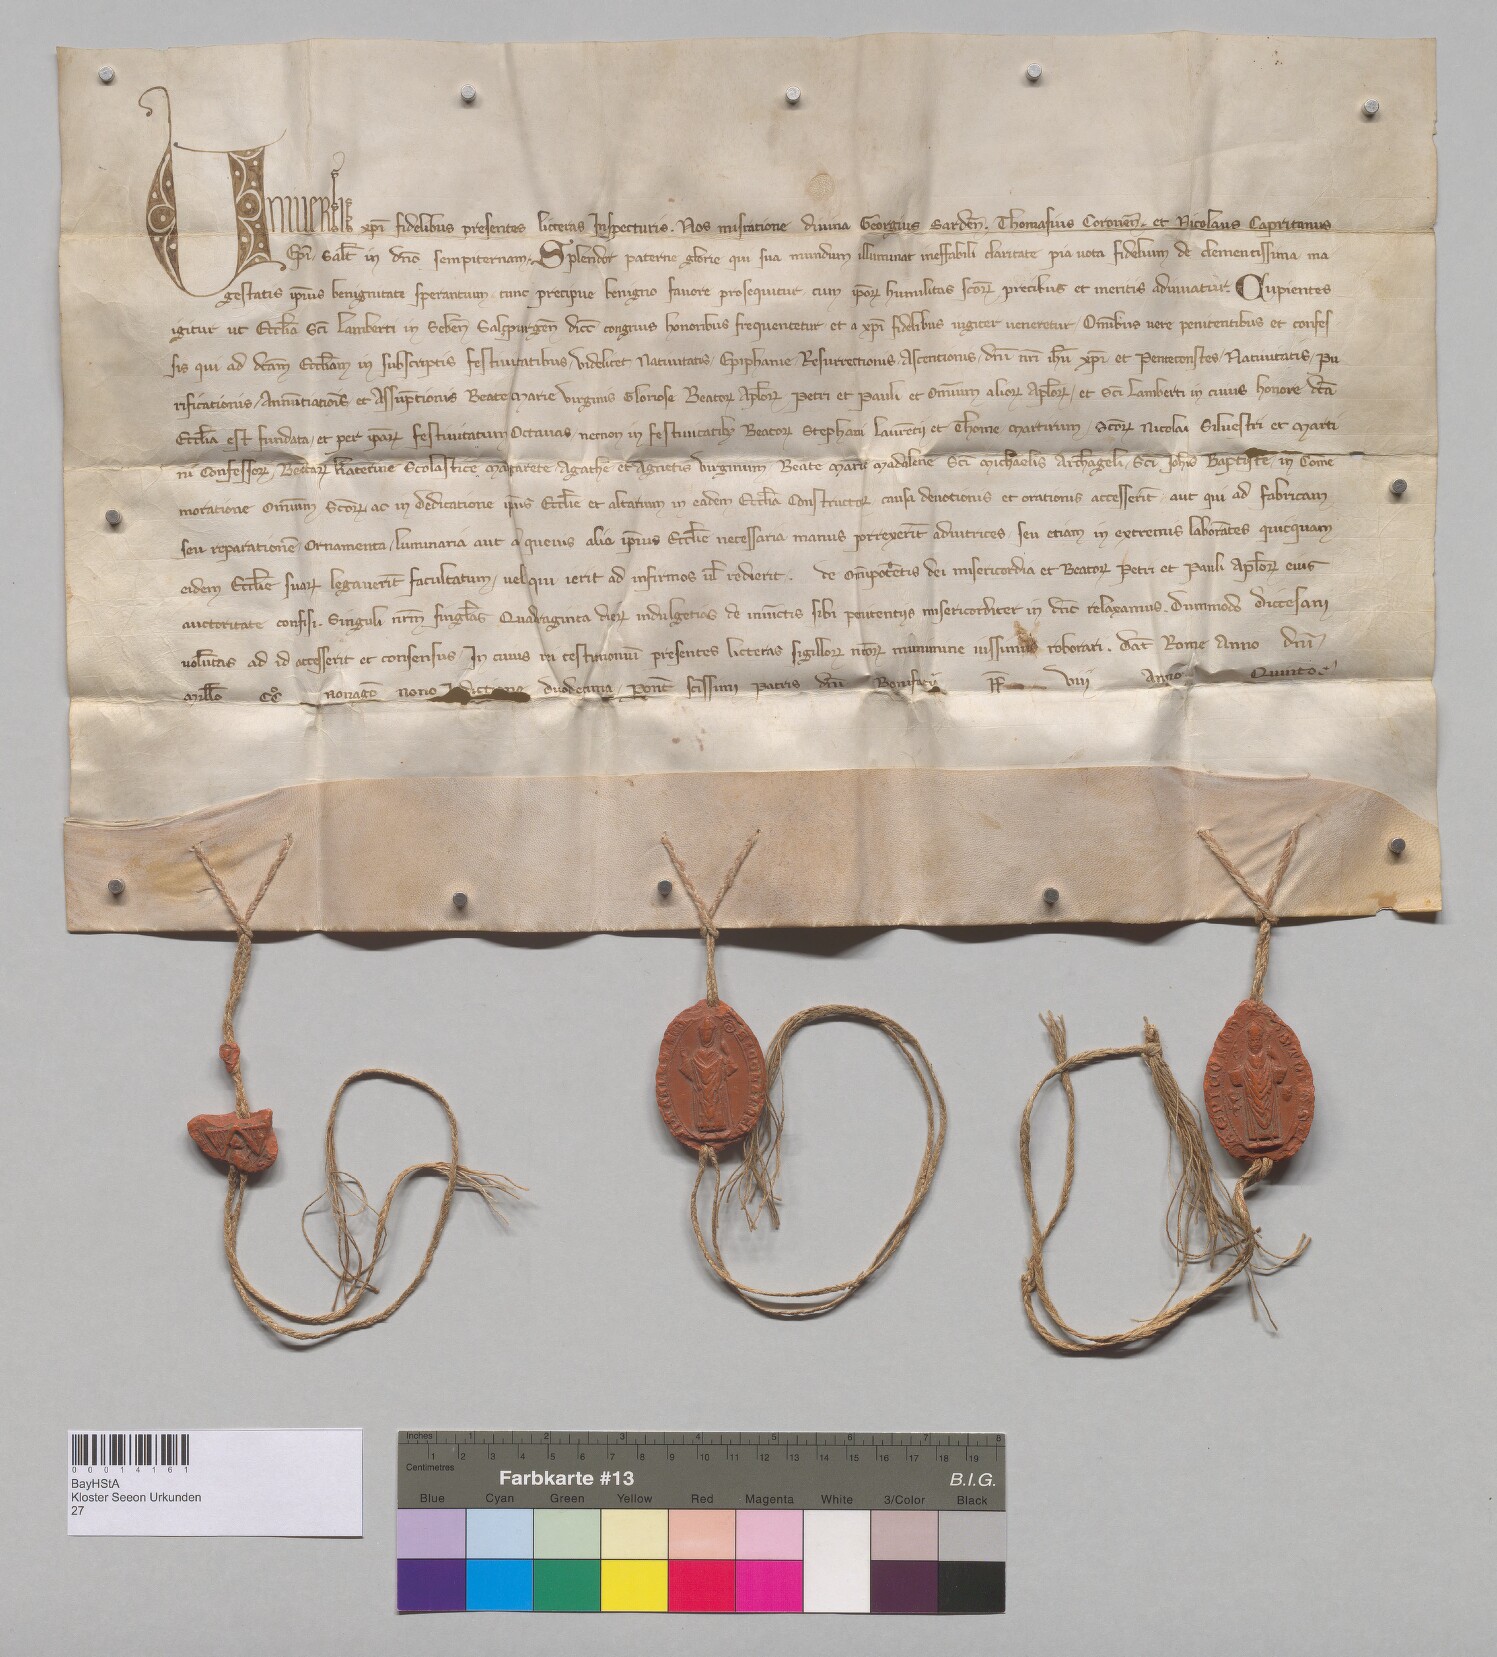 Universis xpi fidelibus presentes licteras Inspecturis. Nos miseratione divina Georgius Sardeñ. Thomasius Coroneñ. et Nicolaus Capritanus
Epi. Salt in dno sempiternam. Splendor paterne glorie qui sua mundum illuminat ineffabili claritate pia uota fidelium de clementissima ma
gestatis ipsius benignitate sperantium tunc precipue benigno fauore prosequitur cum ipsoꝝ humilitas scoꝝ precibus et meritis adiuuatur. Cupientes
igitur ut Ecctia Sci Lamberti in Seben Salczpurgen dioc congruis honoribus frequentetur et a xpi fidelibus iugiter ueneretur Omnibus uere penitentibus et confes
sis qui ad dcam Ecctiam in subscriptis festiuitatibus uidelicet Natiuitatis, Epiphanie, Resurrectionis, Ascentionis, dni nri ihu xpi et Pentecostes, Natiuitatis, Pu
rificationis, Annutiationis et Assuptionis Beate marie uirginis Gloriose Beatoꝝ Aptoꝝ Petri et Pauli et Omnium alioꝝ Aptoꝝ, et Sci Lamberti in cuius honore dca
Ecctia est fundata, et per ipaꝝ festiuitatum Octauas, necnon in festiuitatibꝫ Beatoꝝ Stephani Laurecij et Thome martirum, Scoꝝ Nicolai Siluestri et marti
ni Confessoꝝ, Beataꝝ katerine Scolastice margarete Agathe et Agnetis uirginum, Beate marie madalene Sci michaelis Archageli, Sci Johis Baptiste, in Come
moratione Omnium Scoꝝ, ac in dedicatione ipius Ecctie et altarium in eadem Ecctia Constructoꝝ causa deuotionis et orationis accesserit, aut qui ad fabricam
seu reparatione, Ornamenta, luminaria aut queuis alia ipius Ecctie necessaria manus porrexerit adiutrices, seu etiam in extremis laborates quicquam
eidem Ecctie suaꝝ legauerit facultatum, uel qui ierit ad infirmos ut redierit. de Omipotetis dei misericordia et Beatoꝝ Petri et Pauli Aptoꝝ eius
auctoritate confisi. Singuli nrm singlas Quadraginta dieꝝ indulgetias de iniuctis sibi penitentijs misericorditer in dno relaxamus. Dummodo diocesani
uoluntas ad id accesserit et consensus. In cuius rei testimonium presentes licteras sigilloꝝ nroꝝ munimine iussimus roborari. Dat Rome Anno dni
millo CCo nonageo nono Indictione duodecima, Pont scissimi Patris dni Bonifacij PP viij Anno Quinto.
00014161
BayHStA
Kloster Seeon Urkunden
27
Inches 1 2 3 4 5 6 7 8
Centimetres 1 2 3 4 5 6 7 8 9 10 11 12 13 14 15 16 17 18 19
Farbkarte #13 B.I.G.
Blue Cyan Green Yellow Red Magenta White 3/Color Black